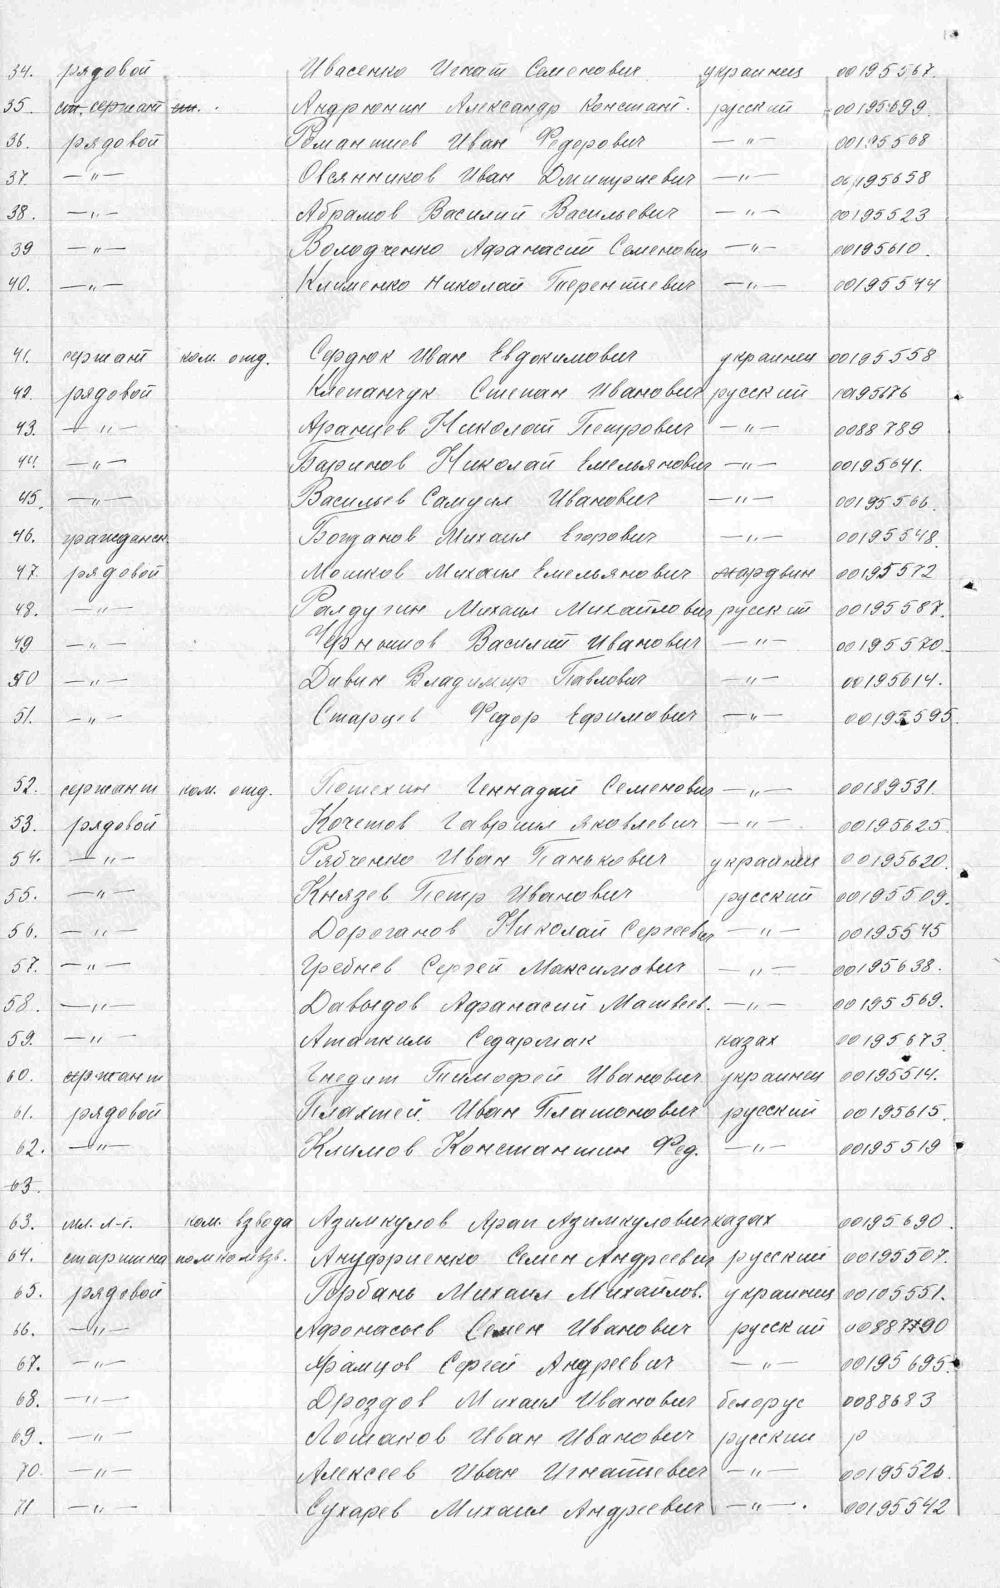 34. рядовой Ивасенко Игнат Семенович украинец 00195567.
35. ст. сержант Андрюнин Александр Констант. русский 00195699
36. рядовой Романтиев Иван Федорович —"— 00195568
37. —"— Овсянников Иван Дмитриевич —"— 00195658
38. —"— Абрамов Василий Васильевич —"— 00195523
39 —"— Володченко Афанасий Семенович —"— 00195610.
40. —"— Клименко Николай Терентиевич —"— 00195544
41. сержант ком. отд. Сердюк Иван Евдокимович украинец 00195558
42. рядовой Клепанчук Степан Иванович русский
43. —"— Аранцев Николай Петрович —"— 0088789
44. —"— Баринов Николай Емельянович —"— 00195641.
45. —"— Васильев Самуил Иванович —"— 00195566.
46. гражданск Богданов Михаил Егорович —"— 00195548.
47. рядовой Мошков Михаил Емельянович мордвин 00195572
48. —"— Ралдугин Михаил Михайлович русский 00195587.
49 —"— Василий Иванович —"— 00195570.
50 —"— Дивин Владимир Павлович —"— 00195614.
51. —"— Старцев Федор Ефимович —"— 00195595.
52. сержант ком. отд. Потехин Геннадий Семенович —"— 00189531.
53. рядовой Кочетов Гавриил Яковлевич —"— 00195625.
54. —"— Рябченко Иван Панькович украинец 00195620.
55. —"— Князев Петр Иванович русский 00195509.
56. —"— Дороганов Николай Сергеевич —"— 00195545
57. —"— Гребнев Сергей Максимович —"— 00195638.
58. —"— Давыдов Афанасий Матвеев. —"— 00195569.
59. —"— Атапкиль Седармак казах 00195673
60. сержант Гнедит Тимофей Иванович украинец 00195514.
61. рядовой Плахтей Иван Платонович русский 00195615.
62. —"— Климов Константин Фед. —"— 00195519
63.
63. мл. л-т. ком. взвода Азимкулов Арап Азимкулович казах 00195690.
64. старшина помкомвзв. Ануфриенко Семен Андреевич русский 00195507.
65. рядовой Горбань Михаил Михайлов. украинец 00105551.
66. —"— Афонасьев Семен Иванович русский 0088790
67. —"— Храмцов Сергей Андреевич —"— 00195695.
68. —"— Дроздов Михаил Иванович белорус 0088683
69. —"— Ломаков Иван Иванович русский р
70. —"— Алексеев Иван Игнатиевич —"— 00195526.
71 —"— Сухарев Михаил Андреевич —"—. 00195542